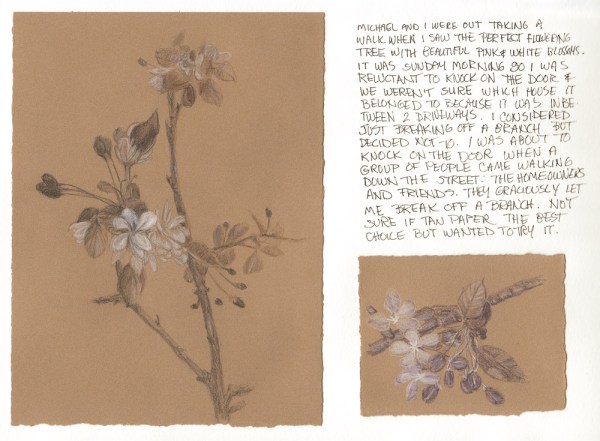 MICHAEL AND I WERE OUT TAKING A
WALK WHEN I SAW THE PERFECT FLOWERING
TREE WITH BEAUTIFUL PINK & WHITE BLOSSOMS.
IT WAS SUNDAY MORNING SO I WAS
RELUCTANT TO KNOCK ON THE DOOR &
WE WEREN'T SURE WHICH HOUSE IT
BELONGED TO BECAUSE IT WAS IN BE-
TWEEN 2 DRIVEWAYS. I CONSIDERED
JUST BREAKING OFF A BRANCH BUT
DECIDED NOT TO. I WAS ABOUT TO
KNOCK ON THE DOOR WHEN A
GROUP OF PEOPLE CAME WALKING
DOWN THE STREET: THE HOMEOWNERS
AND FRIENDS. THEY GRACIOUSLY LET
ME BREAK OFF A BRANCH. NOT
SURE IF TAN PAPER THE BEST
CHOICE BUT WANTED TO TRY IT.